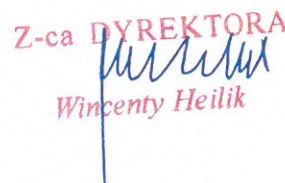 Z-ca DYREKTORA
Wincenty Heilik